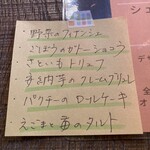 野菜のフィナンシェ
ごぼうのガトーショコラ
さといもトリュフ
安納芋のクレームブリュレ
パクチーのロールケーキ
えごまと苺のタルト
シェ
デ